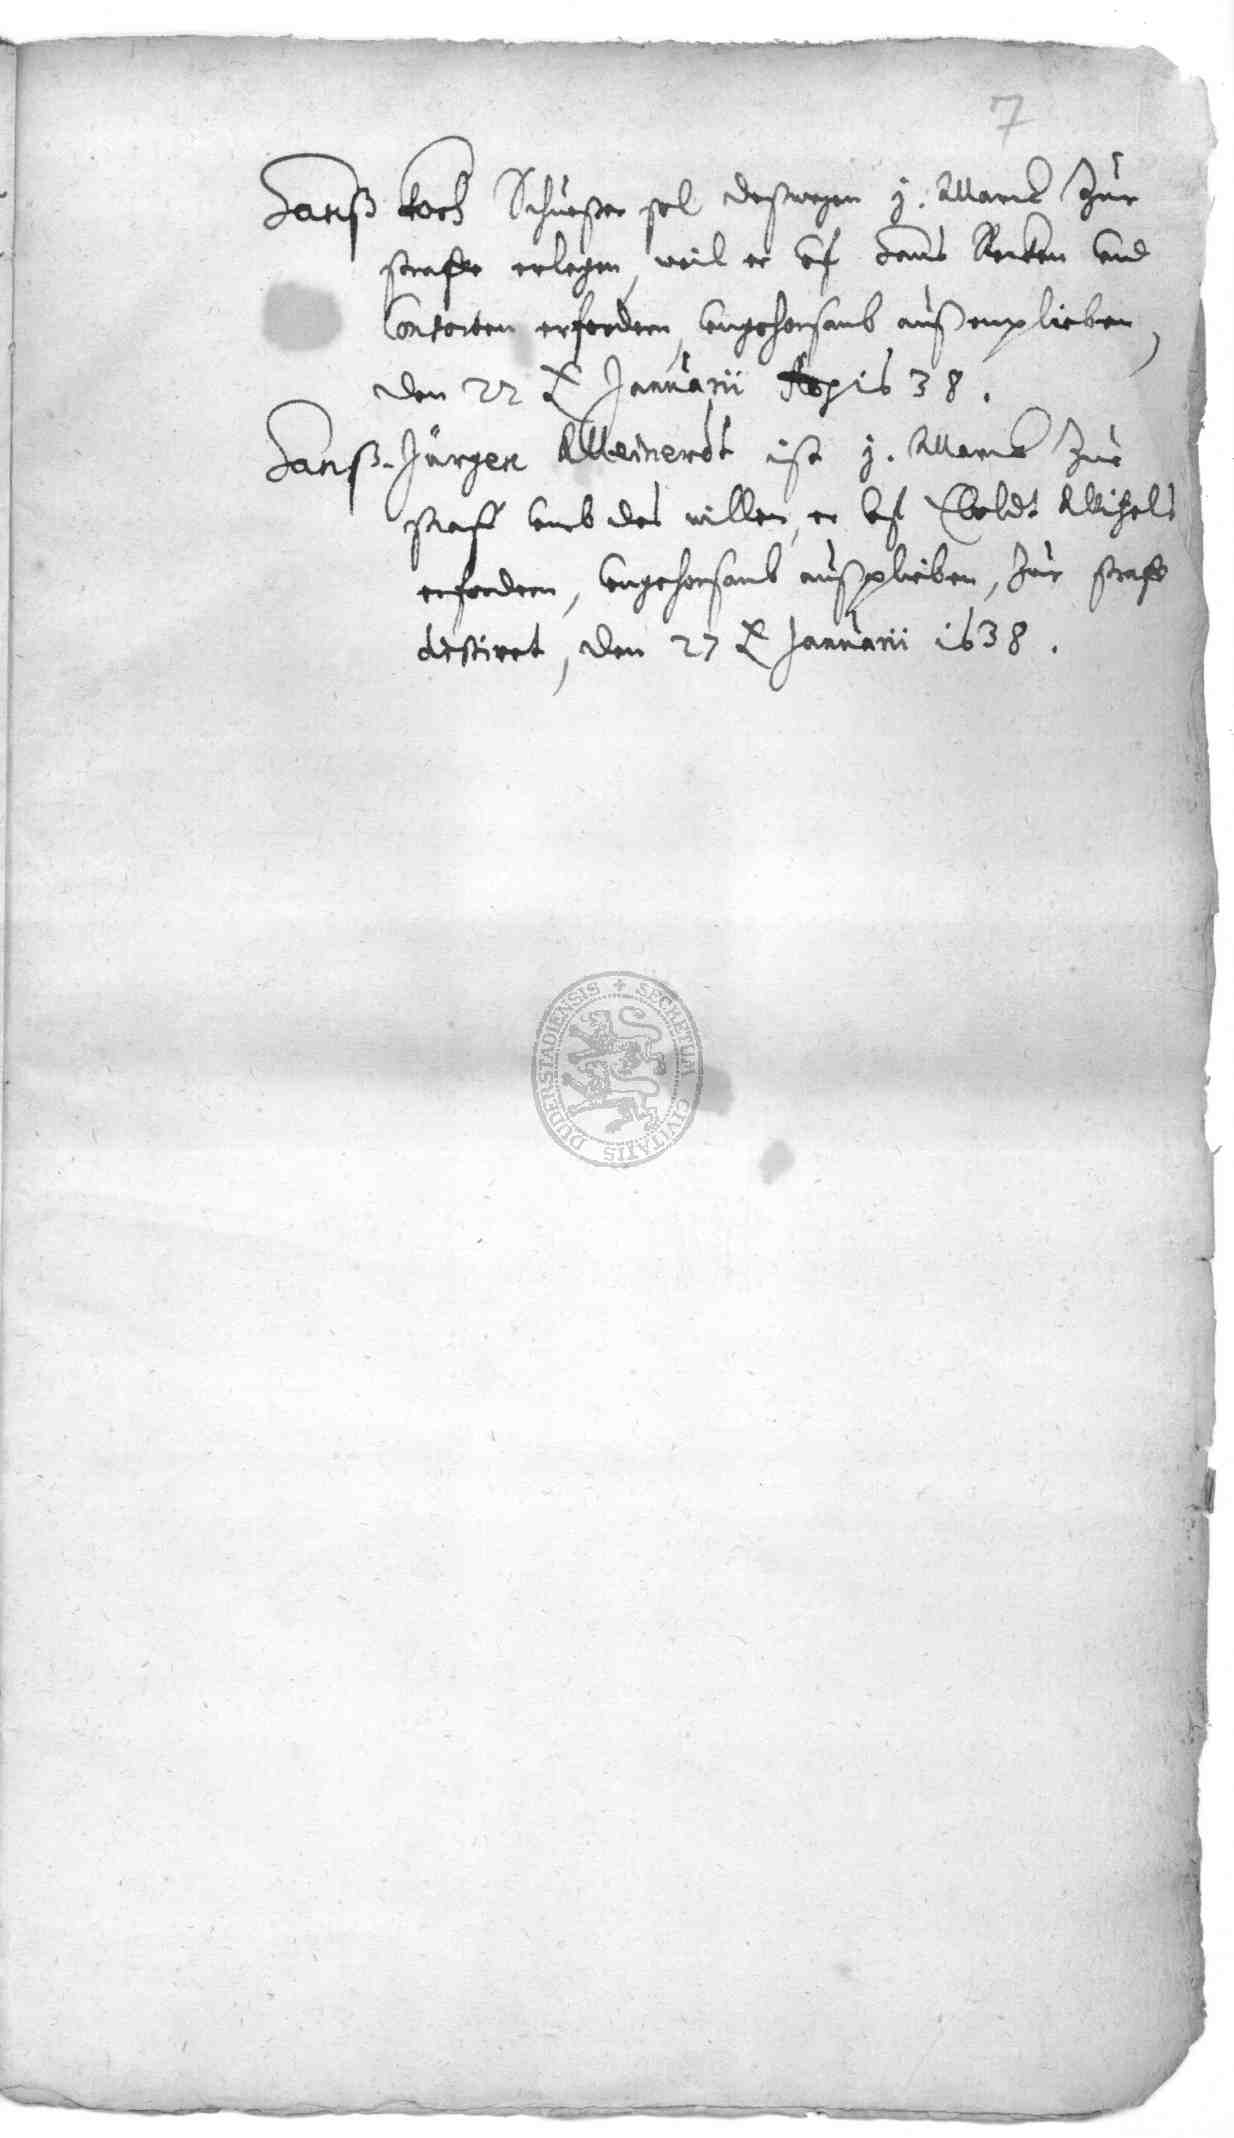 7
Hanß Koch Schuester sol deßwegen j. Marck Zur
straffe erlegen, weil er vf Hans Recken vnd
Consorten erfordern, vngehorsamb außenplieben,
den 22 Januarii 38.
Hanß Jürgen Meinerdt ist j. Marck Zur
straff vmb des willen, er vf Michels
erfordern, vngehorsamb außplieben, Zur straffe
den 27 Januarii 1638.
SECRETUM CIVITATIS DUDERSTADIENSIS